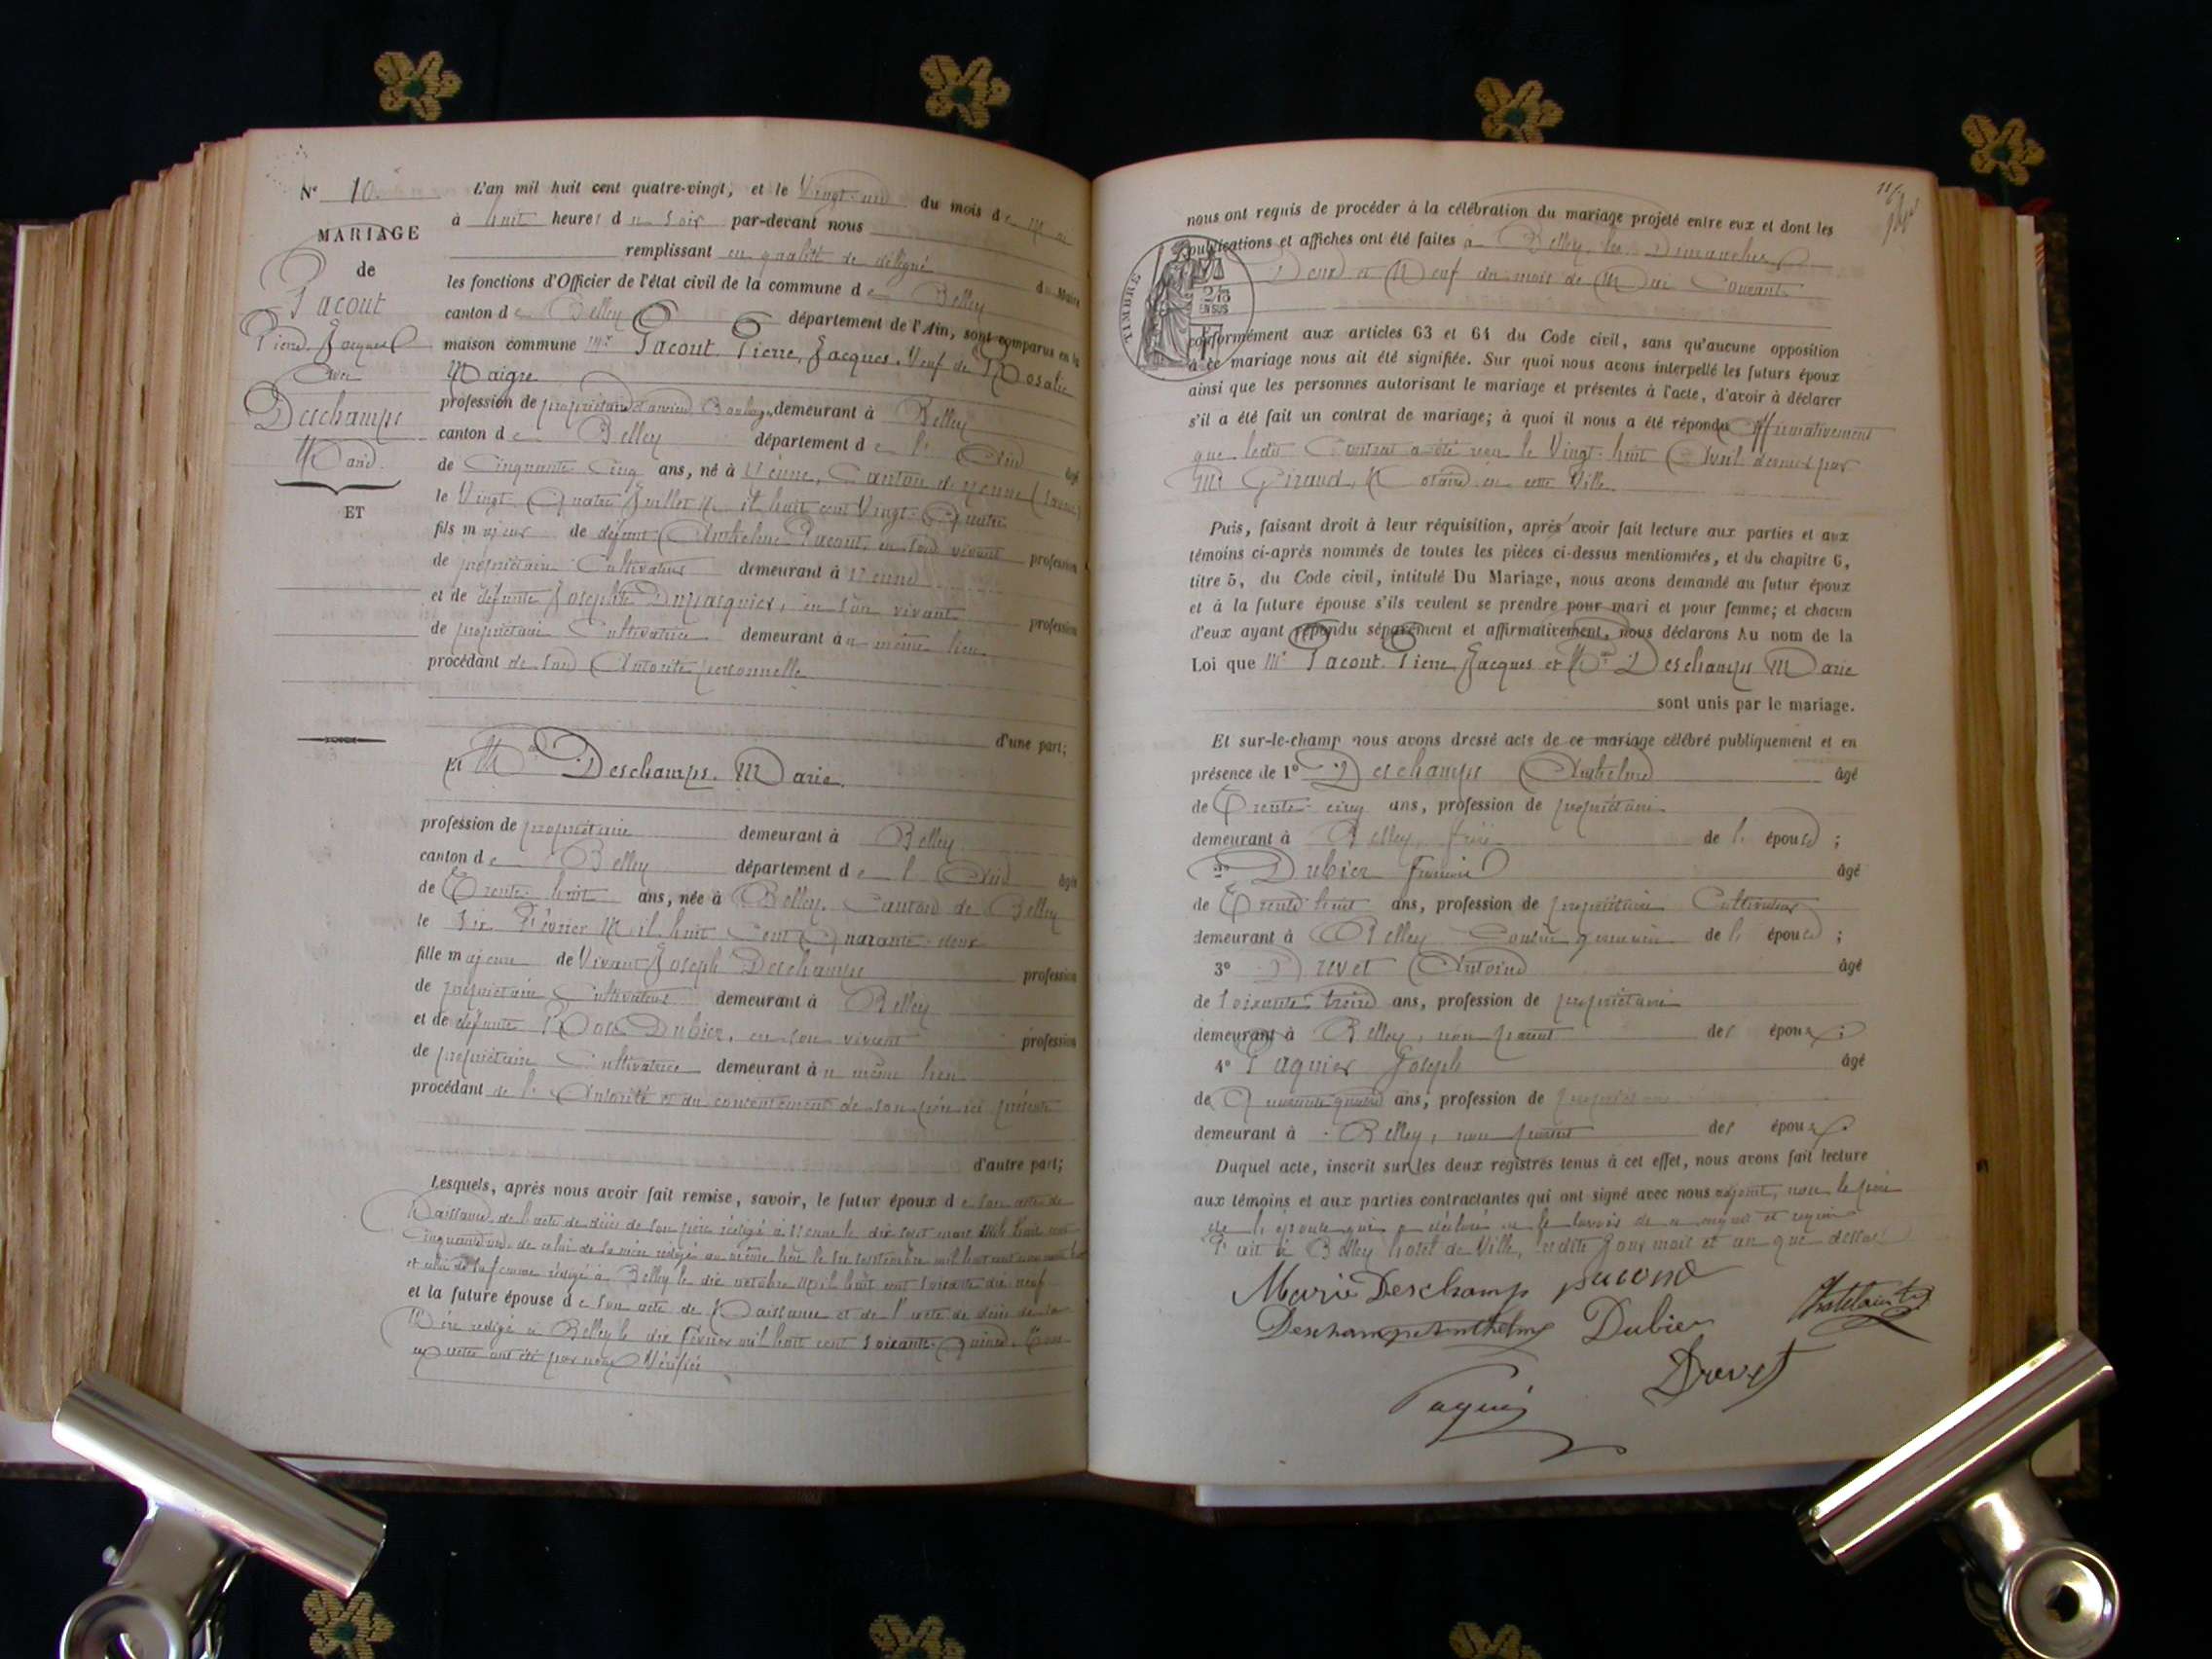 N° 10
MARIAGE
de
Pacout
Pierre, Jacques
avec
Deschamps
Marie
ET
L'an mil huit cent quatre-vingt, et le Vingt-un du mois de Mai
à huit heures du Soir par-devant nous
remplissant en qualité de délégué du Maire
les fonctions d'Officier de l'état civil de la commune de Belley
canton de Belley département de l'Ain, sont comparus en la
maison commune Mr Pacout Pierre, Jacques, Veuf de Rosalie
Maigre
profession de propriétaire ancien demeurant à Belley
canton de Belley département de l'Ain âgé
de Cinquante Cinq ans, né à Yenne, Canton de Yenne (Savoie)
le Vingt Quatre Juillet Mil huit cent Vingt-Quatre
fils majeur de défunt Anthelme Pacout, en son vivant profession
de propriétaire Cultivateur demeurant à Yenne
et de défunte Josephte Dupasquier, en son vivant profession
de propriétaire Cultivatrice demeurant au même lieu
procédant de son Autorité personnelle
d'une part;
Et Deschamps. Marie
profession de propriétaire demeurant à Belley
canton de Belley département de l'Ain âgée
de Trente-huit ans, née à Belley, Canton de Belley
le Six Février Mil huit Cent Quarante-deux
fille majeure de Vivant Joseph Deschamps profession
de propriétaire Cultivateur demeurant à Belley
et de défunte Rose Dubier, en son vivant profession
de propriétaire Cultivatrice demeurant au même lieu
procédant de l'Autorité et du consentement de son père ici présent
d'autre part;
Lesquels, après nous avoir fait remise, savoir, le futur époux de son acte de
Naissance, de l'acte de décès de son père rédigé à Yenne le dix sept mars Mil huit cent
cinquante un, de celui de sa mère rédigé au même lieu le six septembre mil huit cent
et celui de sa femme rédigé à Belley le dix octobre Mil huit cent Soixante dix neuf
et la future épouse de son acte de Naissance et de l'acte de décès de sa
Mère rédigé à Belley le dix Février mil huit cent Soixante-Quinze. Tous
ces actes ont été par nous Vérifiés
11
TIMBRE
2/10
EN SUS
nous ont requis de procéder à la célébration du mariage projeté entre eux et dont les
publications et affiches ont été faites à Belley, les Dimanches
Deux et Neuf du mois de Mai Courant
conformément aux articles 63 et 64 du Code civil, sans qu'aucune opposition
à ce mariage nous ait été signifiée. Sur quoi nous avons interpellé les futurs époux
ainsi que les personnes autorisant le mariage et présentes à l'acte, d'avoir à déclarer
s'il a été fait un contrat de mariage; à quoi il nous a été répondu Affirmativement
que ledit Contrat a été reçu le Vingt-huit Avril dernier par
Mr Giraud, Notaire en cette Ville
Puis, faisant droit à leur réquisition, après avoir fait lecture aux parties et aux
témoins ci-après nommés de toutes les pièces ci-dessus mentionnées, et du chapitre 6,
titre 5, du Code civil, intitulé Du Mariage, nous avons demandé au futur époux
et à la future épouse s'ils veulent se prendre pour mari et pour femme; et chacun
d'eux ayant répondu séparément et affirmativement, nous déclarons Au nom de la
Loi que Mr Pacout Pierre, Jacques et Deschamps Marie
sont unis par le mariage.
Et sur-le-champ nous avons dressé acte de ce mariage célébré publiquement et en
présence de 1° Deschamps Anthelme âgé
de Trente-cinq ans, profession de propriétaire
demeurant à Belley, frère de l'épouse;
2° Dubier Francois âgé
de Trente huit ans, profession de propriétaire Cultivateur
demeurant à Belley Cousin germain de l'épouse;
3° Drevet Antoine âgé
de Soixante treize ans, profession de propriétaire
demeurant à Belley, non parent des époux;
4° Paquier Joseph âgé
de Quarante quatre ans, profession de propriétaire
demeurant à Belley, non parent des époux.
Duquel acte, inscrit sur les deux registres tenus à cet effet, nous avons fait lecture
aux témoins et aux parties contractantes qui ont signé avec nous adjoint, non le père
de l'épouse qui a déclaré ne le savoir de ce enquis et requis
Fait à Belley hotel de Ville, ledits Jour mois et an que dessus
Marie Deschamp pacout
Deschamps Anthelme Dubier Chatelain
Drevet
Paquier